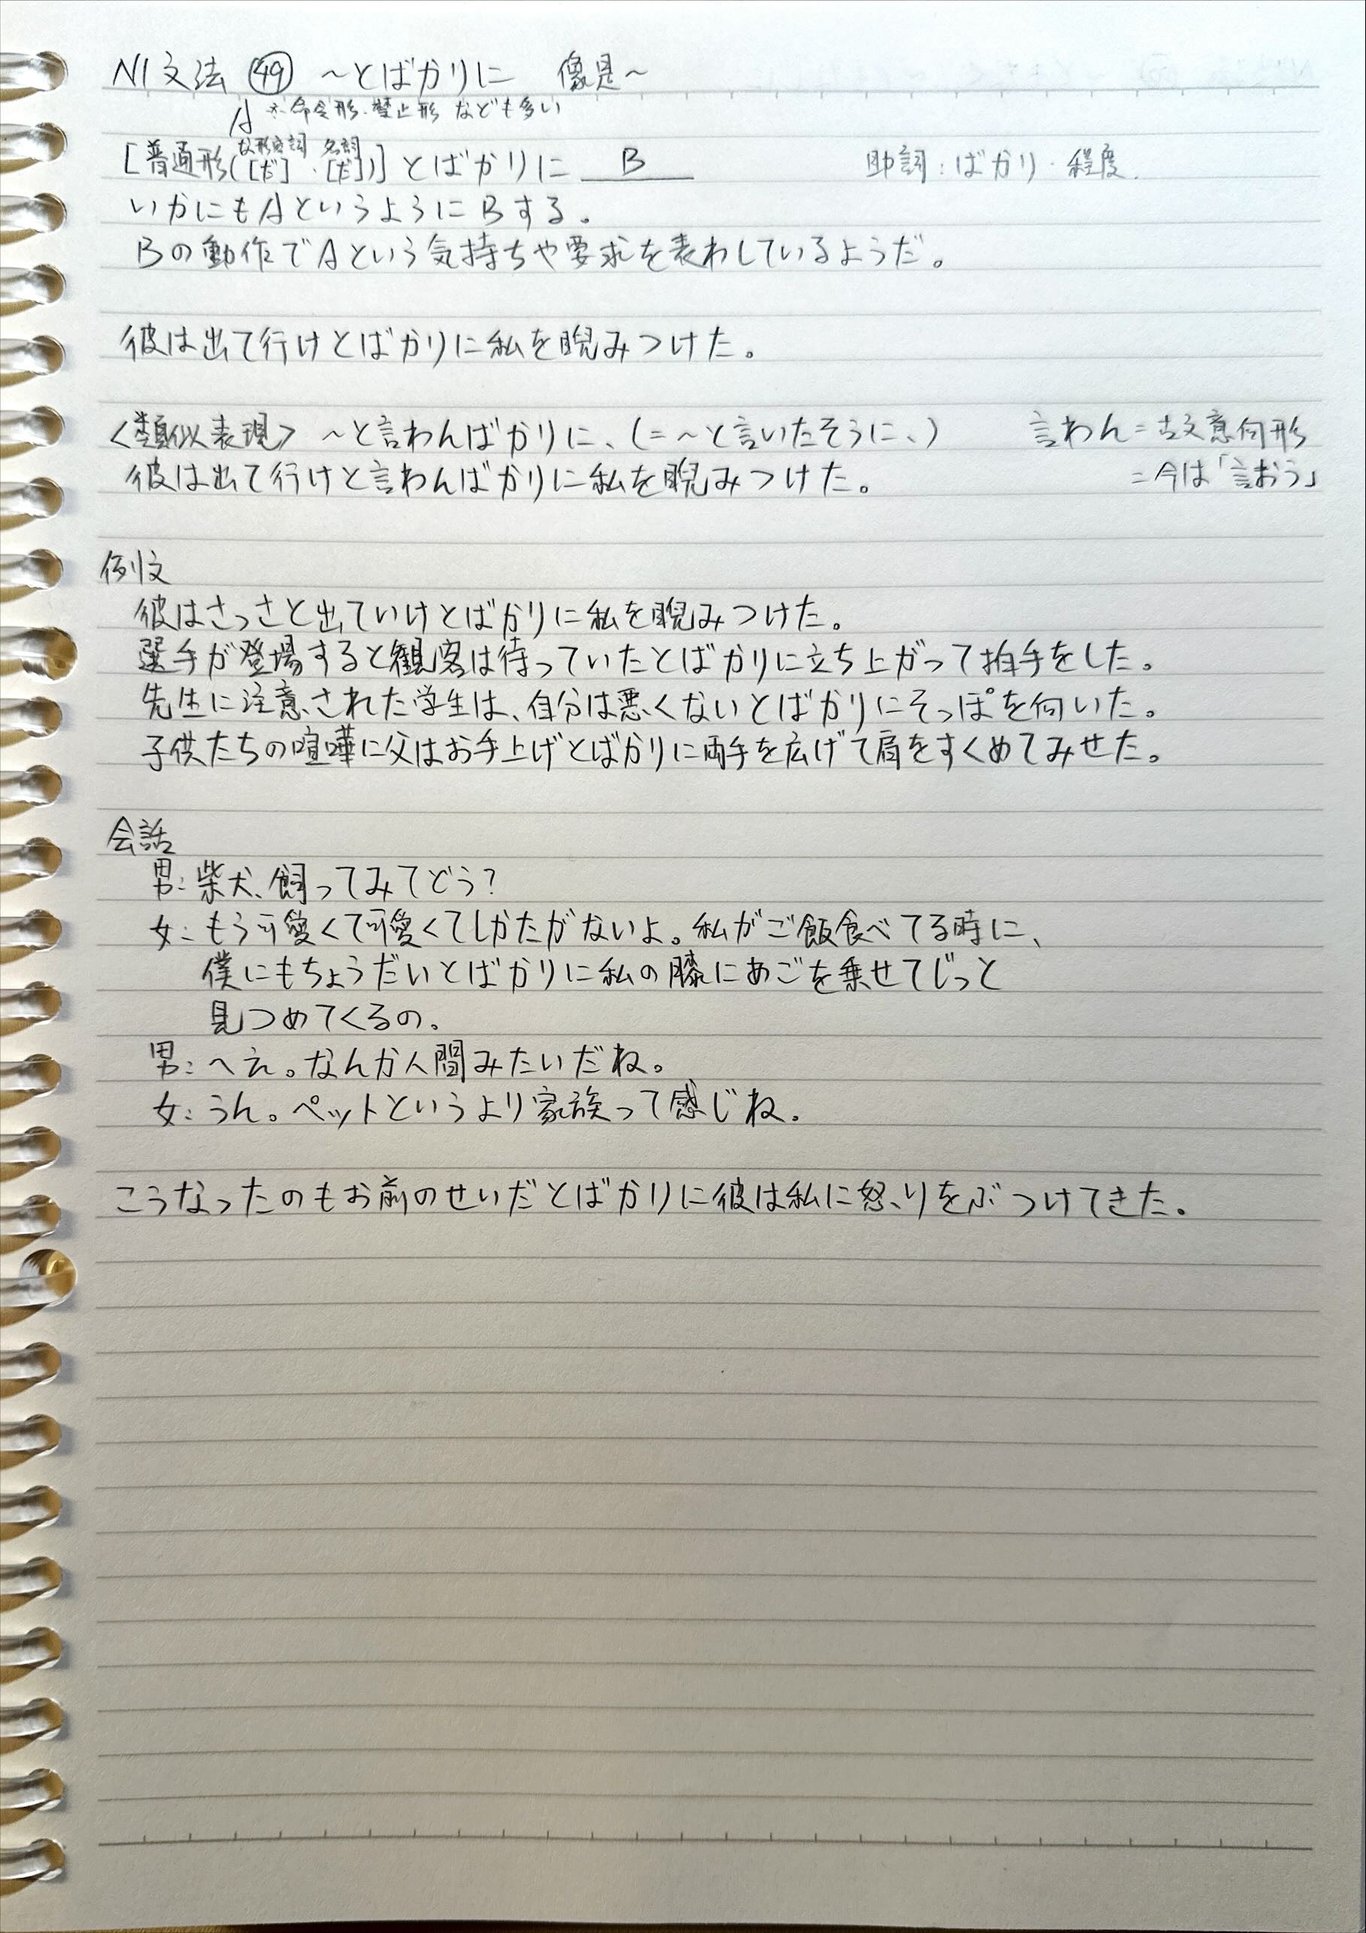 N1文法 ㊾ ～とばかりに 像是～
A ※命令形・禁止形 なども多い
な形容詞 名詞
[普通形([だ]・[だ])]とばかりに B 助詞:ばかり・程度.
いかにもAというようにBする。
Bの動作でAという気持ちや要求を表わしているようだ。
彼は出て行けとばかりに私を睨みつけた。
<類似表現> ～と言わんばかりに、(=～と言いたそうに、) 言わん=古文意向形
彼は出て行けと言わんばかりに私を睨みつけた。 =今は「言おう」
例文
彼はさっさと出ていけとばかりに私を睨みつけた。
選手が登場すると観客は待っていたとばかりに立ち上がって拍手をした。
先生に注意された学生は、自分は悪くないとばかりにそっぽを向いた。
子供たちの喧嘩に父はお手上げとばかりに両手を広げて肩をすくめてみせた。
会話
男:柴犬、飼ってみてどう?
女:もう可愛くて可愛くてしかたがないよ。私がご飯食べてる時に、
僕にもちょうだいとばかりに私の膝にあごを乗せてじっと
見つめてくるの。
男:へえ。なんか人間みたいだね。
女:うん。ペットというより家族って感じね。
こうなったのもお前のせいだとばかりに彼は私に怒りをぶつけてきた。